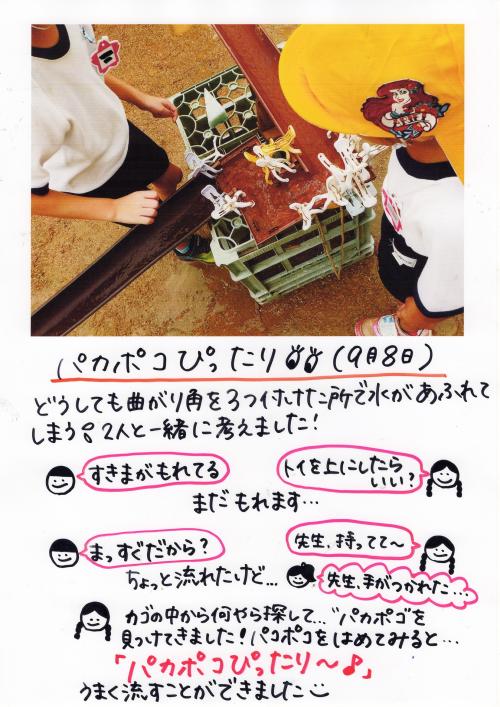 パカポコぴったり (9月8日)
どうしても曲がり角を3つ付けた所で水があふれて
しまう。2人と一緒に考えました!
すきまがもれてる
トイを上にしたら
いい?
まだもれます…
まっすぐだから?
先生、持ってて~
ちょっと流れたけど…
先生、手がつかれた…
カゴの中から何やら探して…"パカポゴを
見つけてきました!パコポコをはめてみると…
「パカポコぴったり~♪」
うまく流すことができました